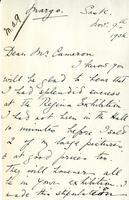 Sask.
Nov. 9th
1906
Dear Mr. Cameron
I know you
will be glad to hear that
I had splendid success
at the Regina Exhibition
I had not been in the Hall
10 minutes before I sold
2 of my large pictures
at good prices too
they will however all
be in your exhibition I
made this stipulation